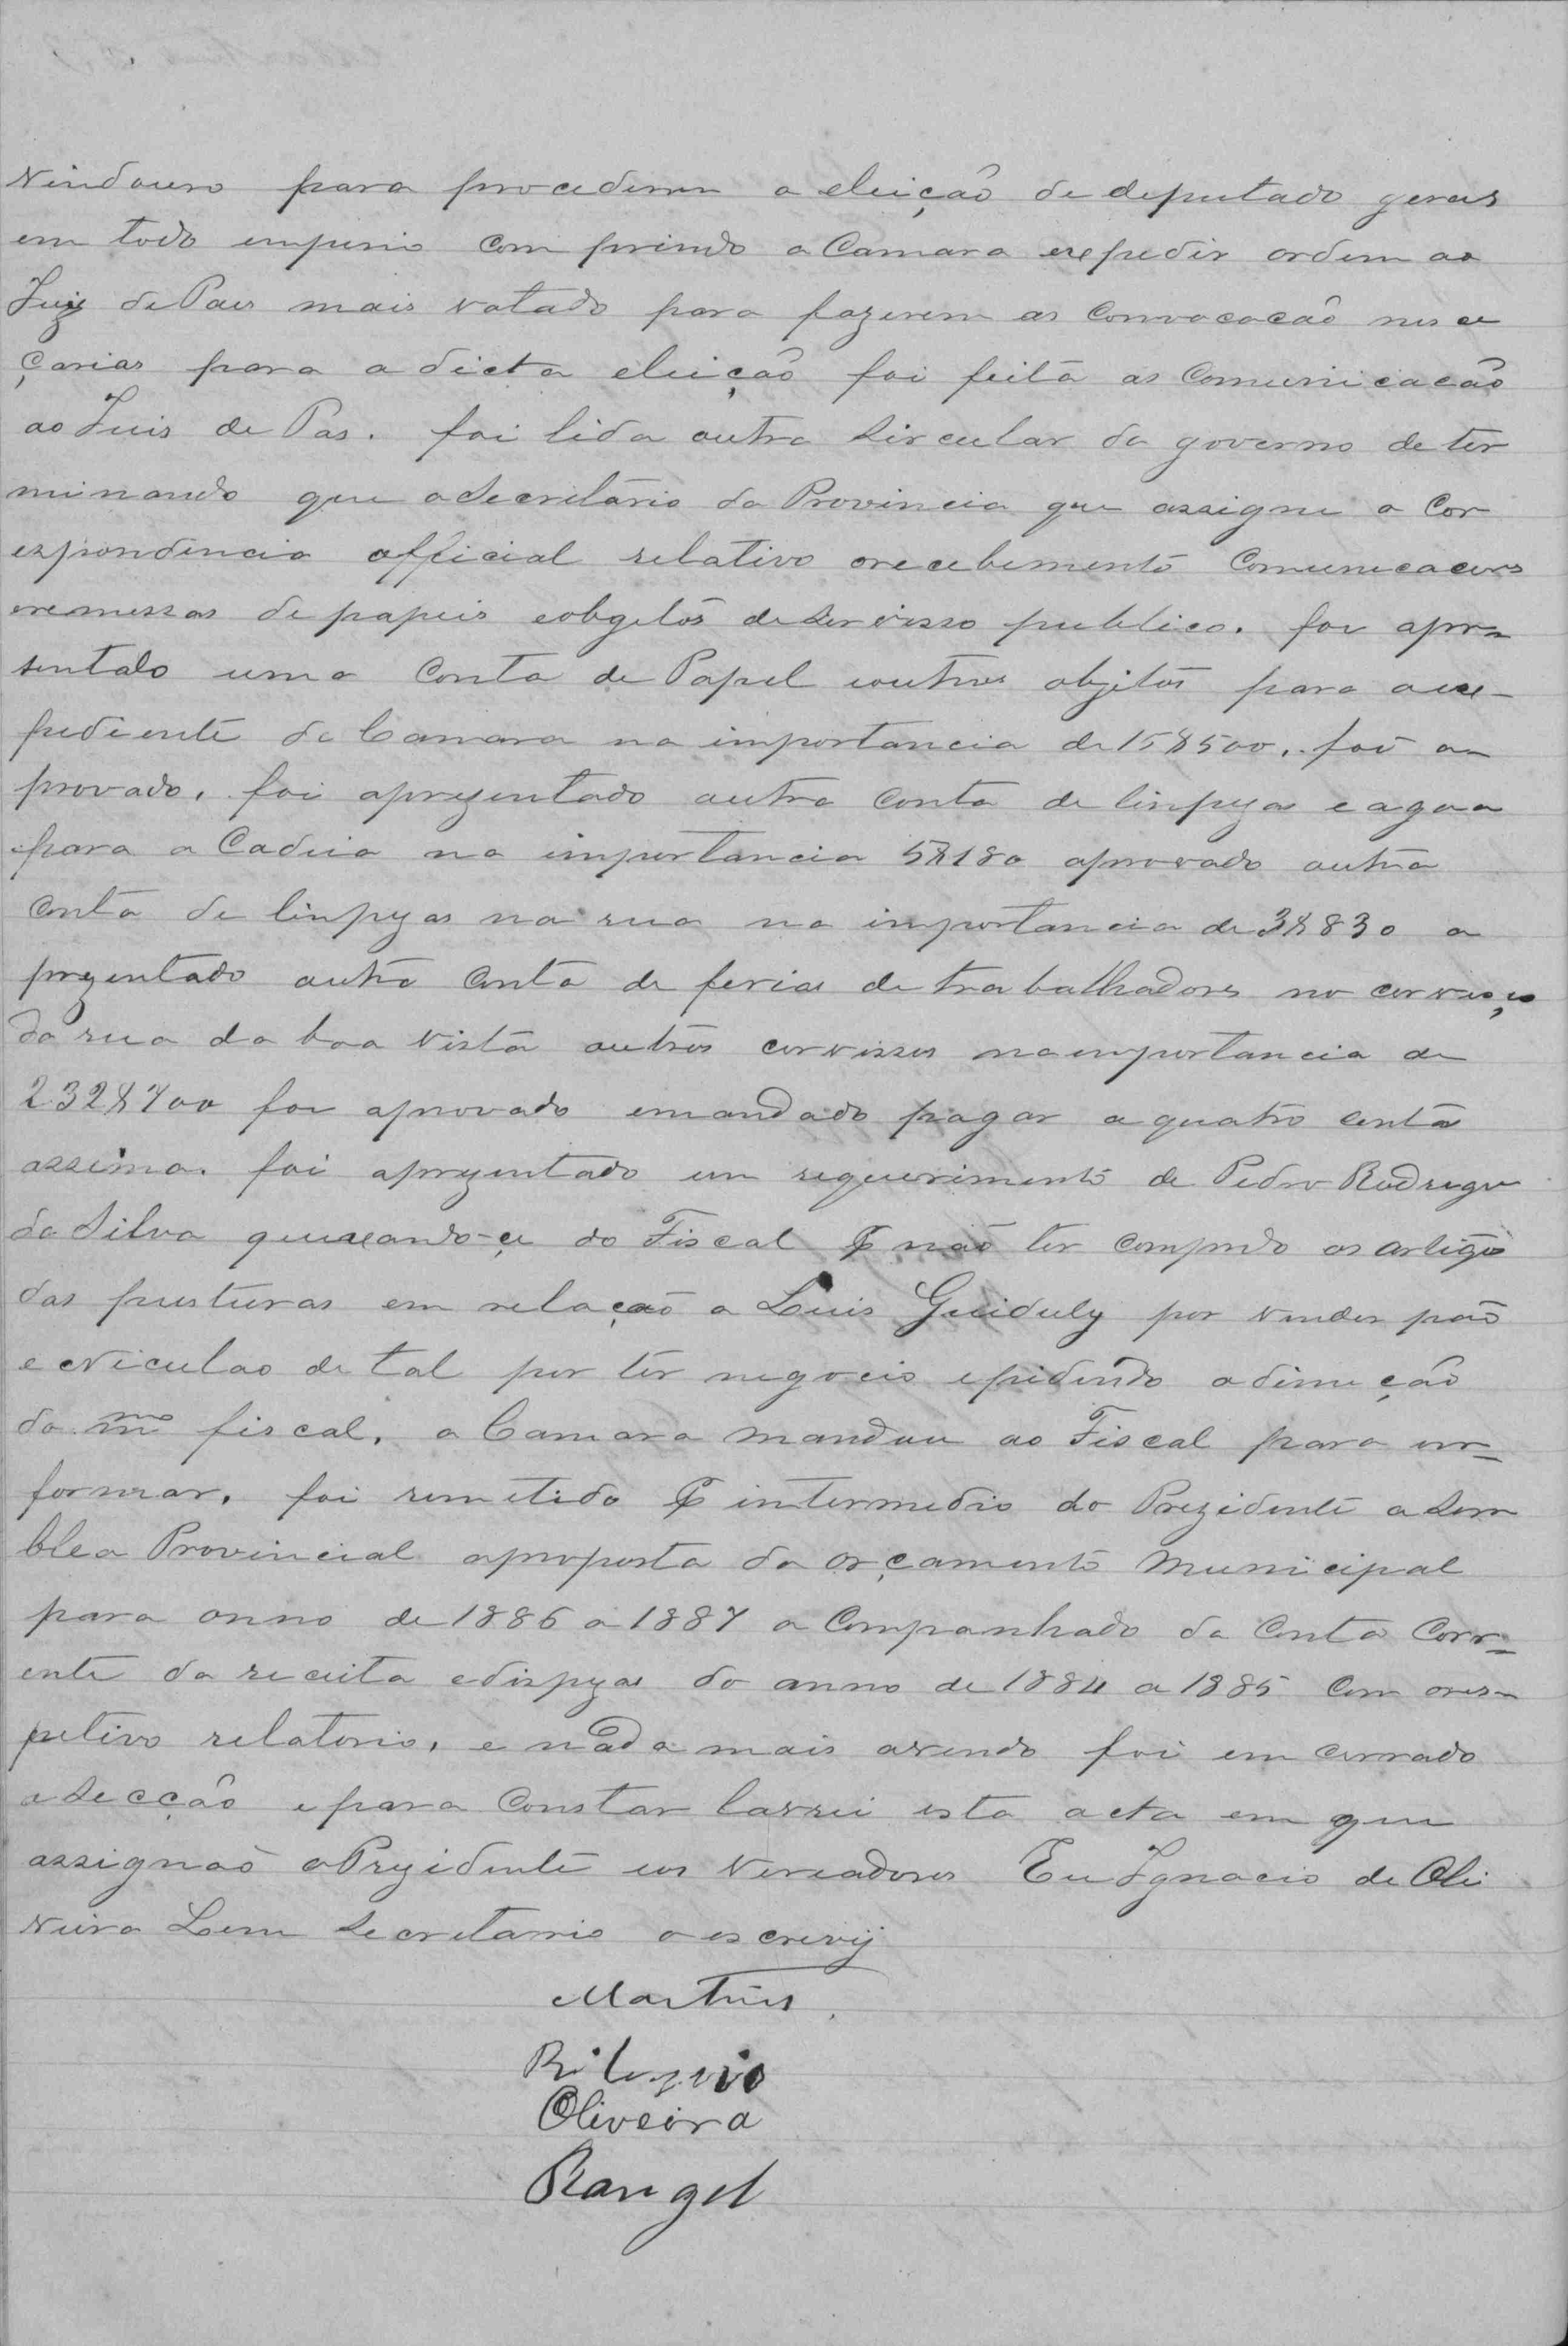 vindouro para procederem a eleição de deputado geraes
em todo emperio com prindo a Camara expedir ordem ao
Juiz de Paes mais votado para fazerem as Convocacão nesce
çarias para a dicta eleição foi feita as Comunicacão
ao Juis de Pas. foi lida outra Sircular do governo deter
minando que o Secretario da Provincia que assigne a Cor
espondencia official relativo orecebimento Comunicacoes
eremessas de papeis eobgetos deServisso publico. foi apre
sentado uma Conta de Papel eoutros objetos para oex-
pediente da Camara na importancia de 15$500, foi a
provado, foi aprezentado outra Conta de linpezas e agoa
para a Cadeia na importancia 5$180 aprovado outra
Conta de linpezas na rua na importancia de 3$830 a
prezentado outra Conta de ferias de trabalhadores no cerviço
da rua da boa vista outros cervissos naemportancia de
232$700 foi aprovado emandado pagar a quatro conta
assima. foi aprezentado um requerimento de Pedro Rodrigue
da Silva queixando-ce do Fiscal P não ter comprido os artigo
das pusturas em relação a Luis Guiduly por vender pão
e Niculao de tal por ter negocio epedindo a dimeção
do mmo fiscal, a Camara mandou ao Fiscal para in-
formar, foi remetido P intermedio do Prezidente a Sem
blea Provincial aproposta do orçamento Municipal
para onno de 1886 a 1887 a Companhado da Conta Corr-
ente da receita edispezas do anno de 1884 a 1885 Com ores-
petivo relatorio, e nada mais avendo foi em cerrado
a Secção epara Constar lavrei esta acta em que
assignaõ oPrezidente eos Vereadores Eu Ignacio de Oli
veira Leme Secretario o escrevij
Martins
Oliveira
Rangel